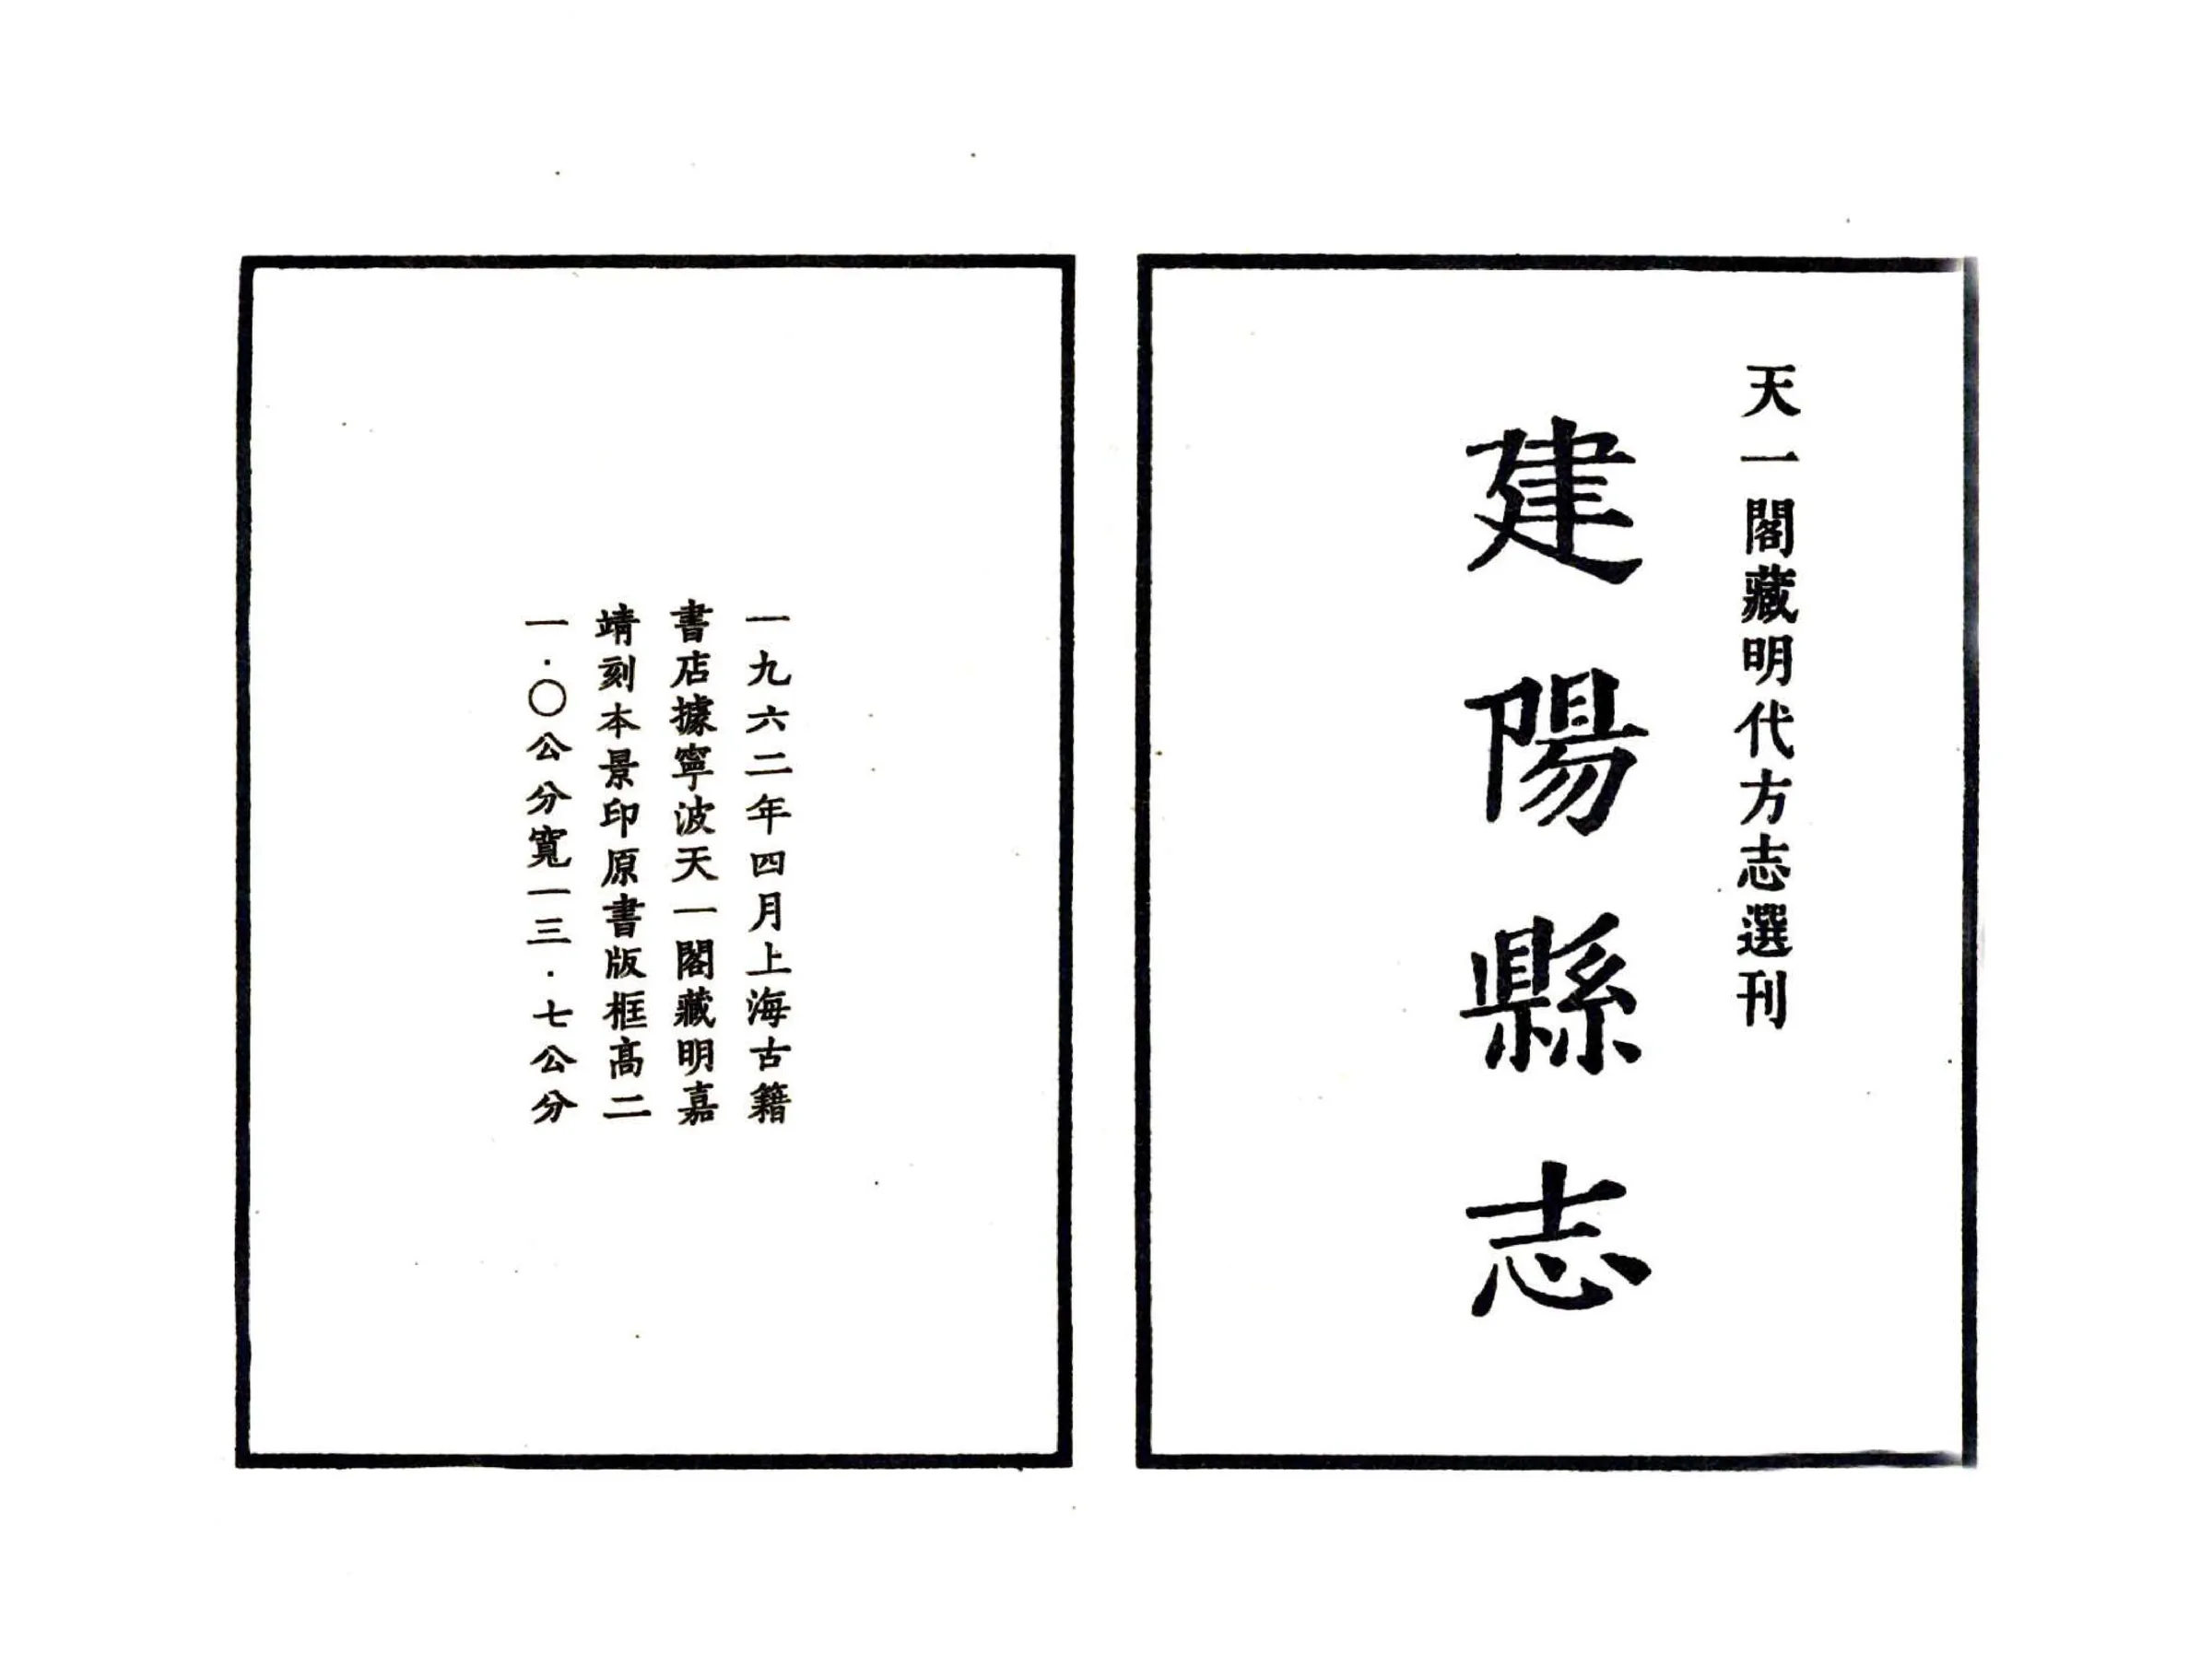 天一閣藏明代方志選刊
建陽縣志
一九六二年四月上海古籍
書店據寧波天一閣藏明嘉
靖刻本景印原書版框高二
一·〇公分寬一三·七公分